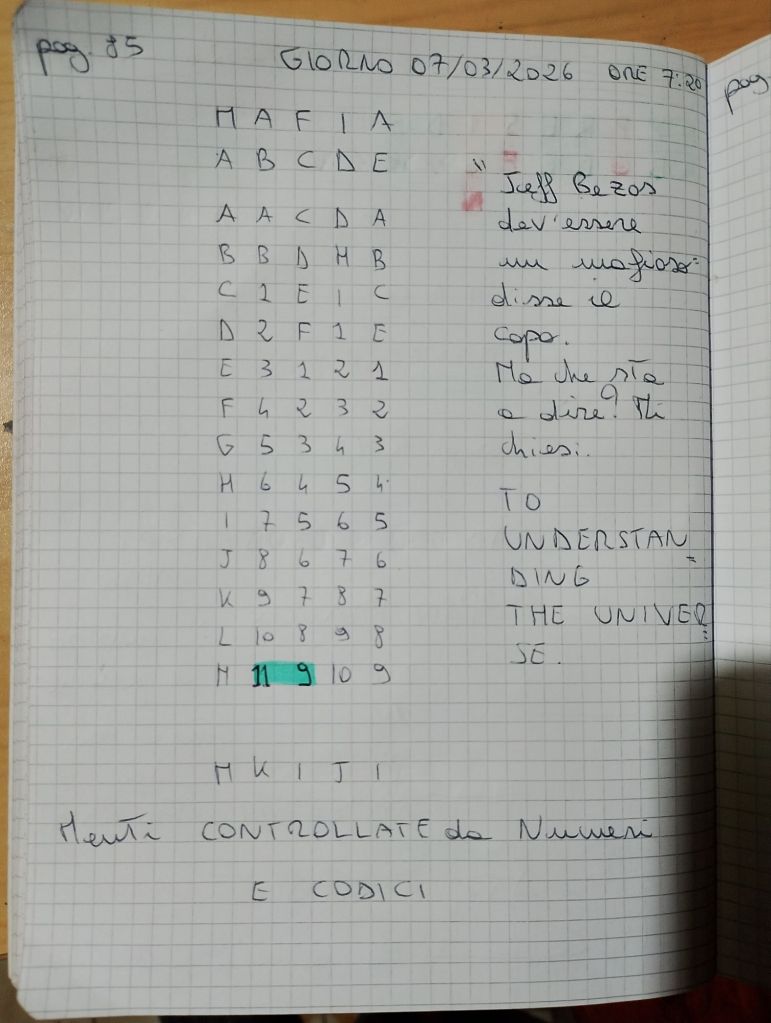 pag. 85
GIORNO 07/03/2026 ORE 7:20
M A F I A
A B C D E
A A C D A
B B D H B
C 1 E I C
D 2 F 1 E
E 3 1 2 1
F 4 2 3 2
G 5 3 4 3
H 6 4 5 4
I 7 5 6 5
J 8 6 7 6
K 9 7 8 7
L 10 8 9 8
M 11 9 10 9
M K I J I
" Jeff Bezos
dev'essere
un mafioso"
disse il
capo.
Ma che sta
a dire? Mi
chiesi.
TO
UNDERSTAN=
DING
THE UNIVER=
SE.
Menti CONTROLLATE da Numeri
E CODICI
pag